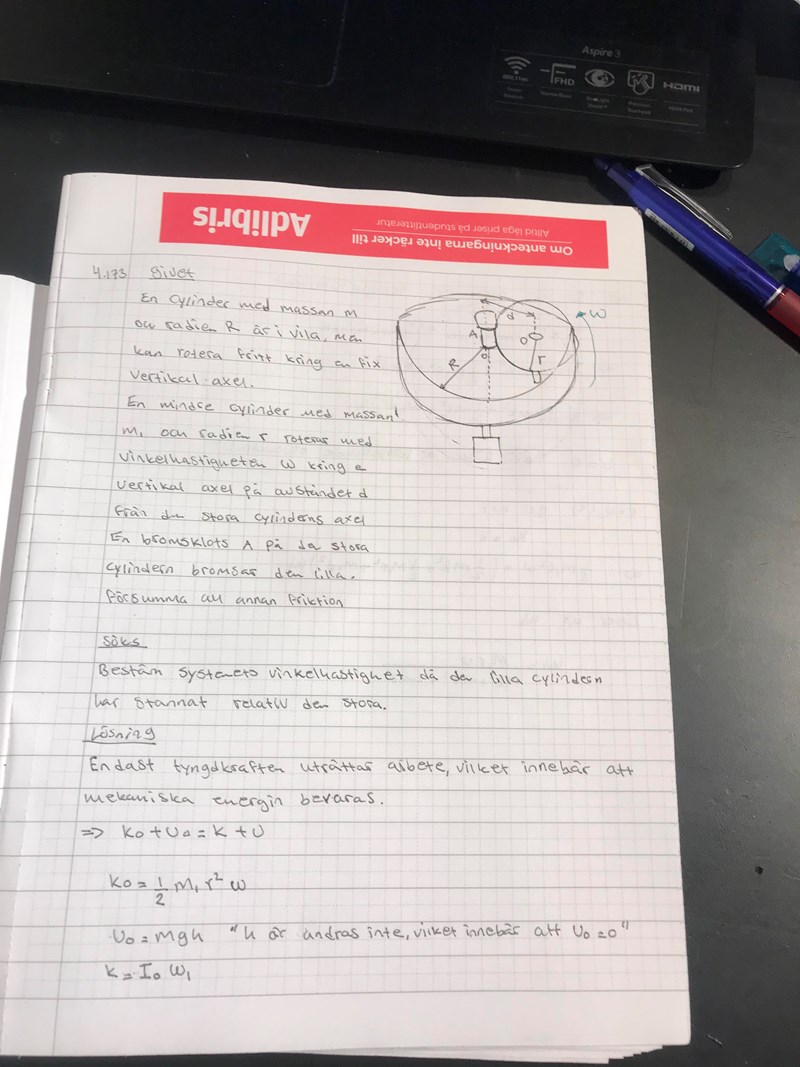 Aspire 3
802.11ac
FHD
HDMI
Om anteckningarna inte räcker till
Alltid låga priser på studentlitteratur
Adlibris
4.173 Givet
En cylinder med massan m
och radien R är i vila, men
kan rotera fritt kring en fix
vertikal axel.
En mindre cylinder med massan
m₁ och radien r roteras med
vinkelhastigheten ω kring e
vertikal axel på avståndet d
från den stora cylinderns axel
En bromsklots A på den stora
cylindern bromsar den lilla.
försumma all annan friktion
d
ω
A
O
O
R
r
Söks
Bestäm systemets vinkelhastighet då den lilla cylindern
har stannat relativ den stora.
Lösning
Endast tyngdkraften uträttar arbete, vilket innebär att
mekaniska energin bevaras.
=> K₀ + U₀ = K + U
K₀ = 1/2 m₁ r² ω
U₀ = mgh "h är ändras inte, vilket innebär att U₀ = 0"
K = I₀ ω₁